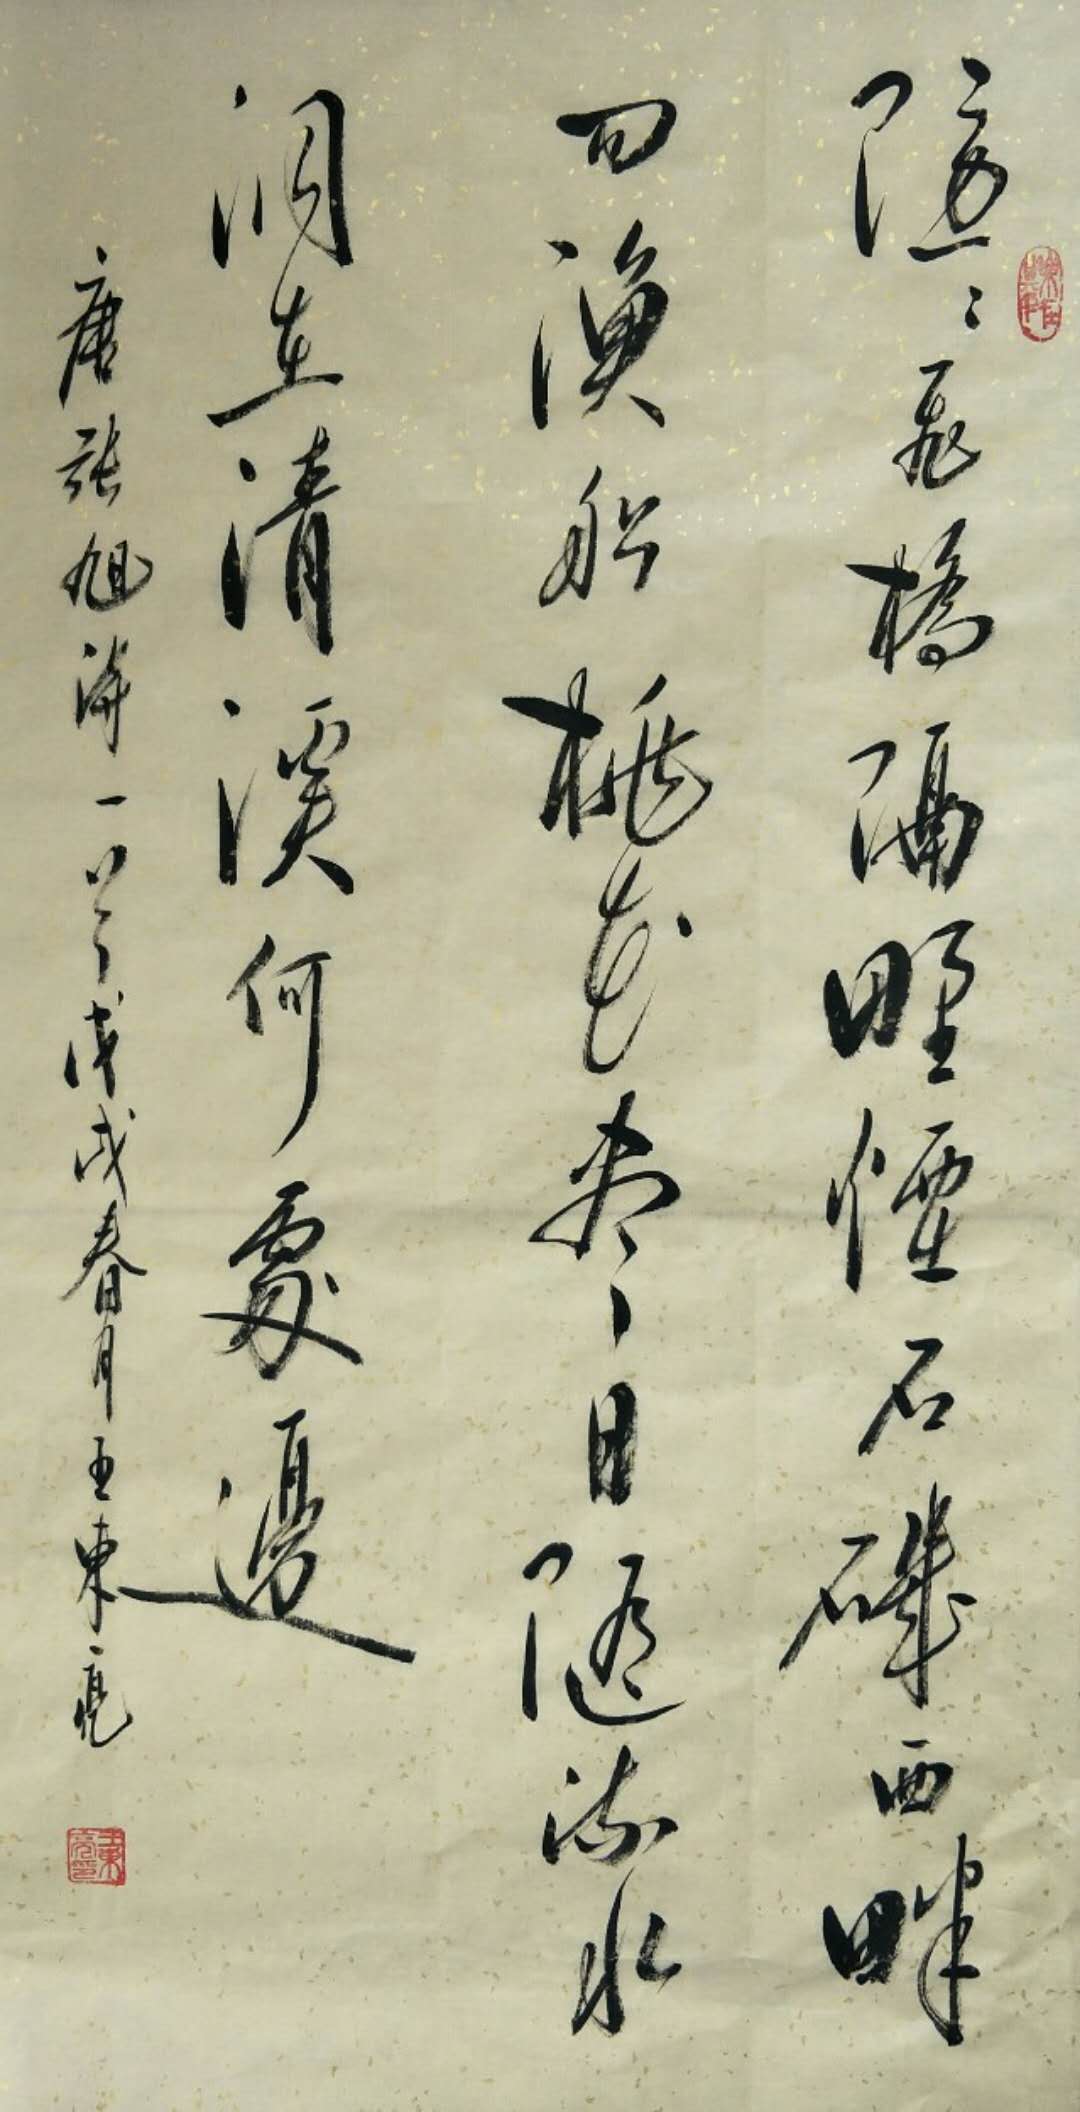 隱隱飛橋隔野煙石磯西畔
問漁船桃花盡日隨流水
洞在清溪何處邊
唐張旭詩一首戊戌春月王東亮